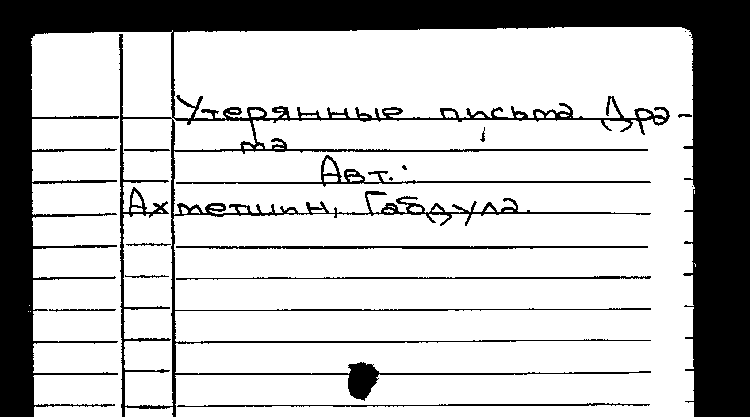 Утерянные письма. Дра-
ма.
Авт.:
Ахметшин, Габдула.